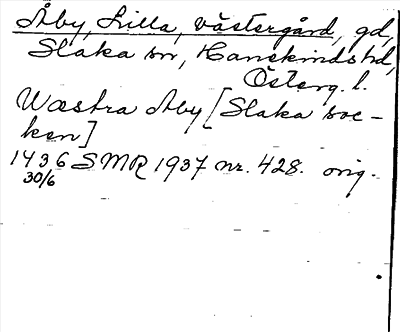 Åby, Lilla, västergård, gd,
Slaka sn, Hanekinds hd,
Österg. l.
Wæstra Aby [Slaka soc-
ken]
1436 SMR 1937 nr. 428. orig.
30/6